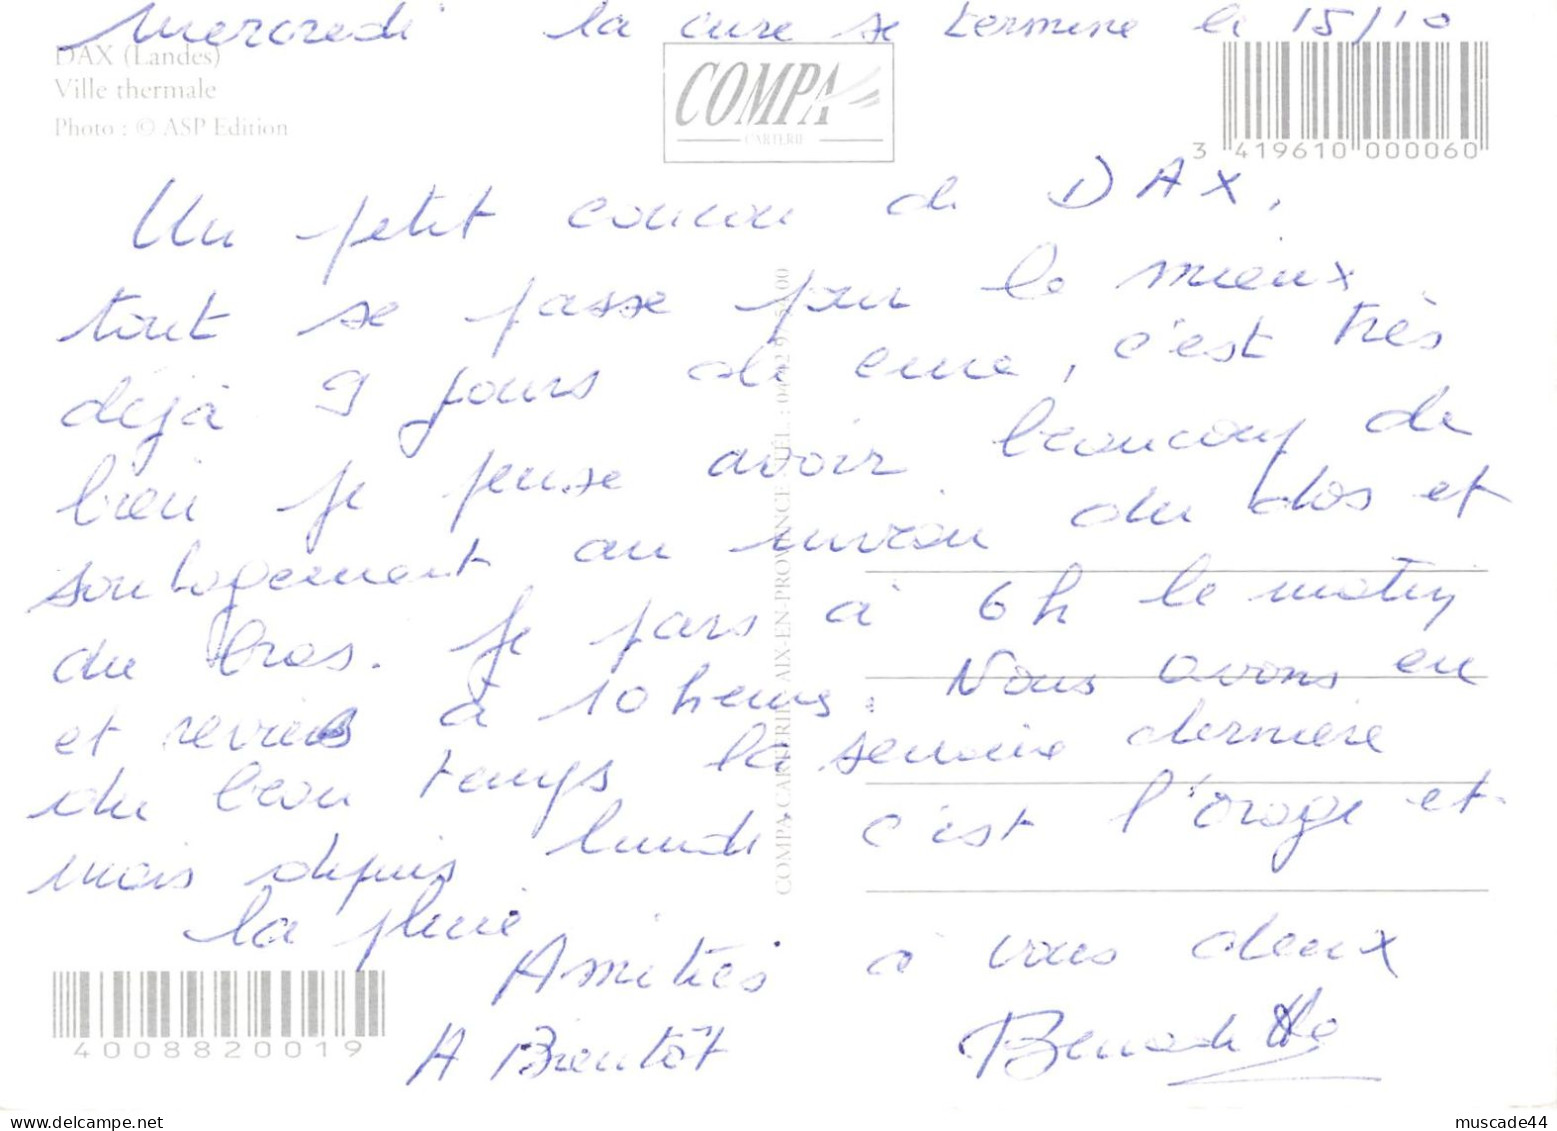 mercredi la cure se termine le 15/10
DAX (Landes)
Ville thermale
Photo : © ASP Edition
COMPA
CARTERIE
3 419610 000060
Un petit coucou de DAX,
tout se passe pour le mieux
déjà 9 jours de cure, c'est très
bien je pense avoir beaucoup de
soulagement au niveau du dos et
du bras. Je pars à 6h le matin
et reviens à 10 heures. Nous avons eu
du beau temps la semaine dernière
mais depuis lundi c'est l'orage et
la pluie
Amitiés à vous deux
A Bientôt
COMPA CARTERIE AIX-EN-PROVENCE
4008820019
muscade44